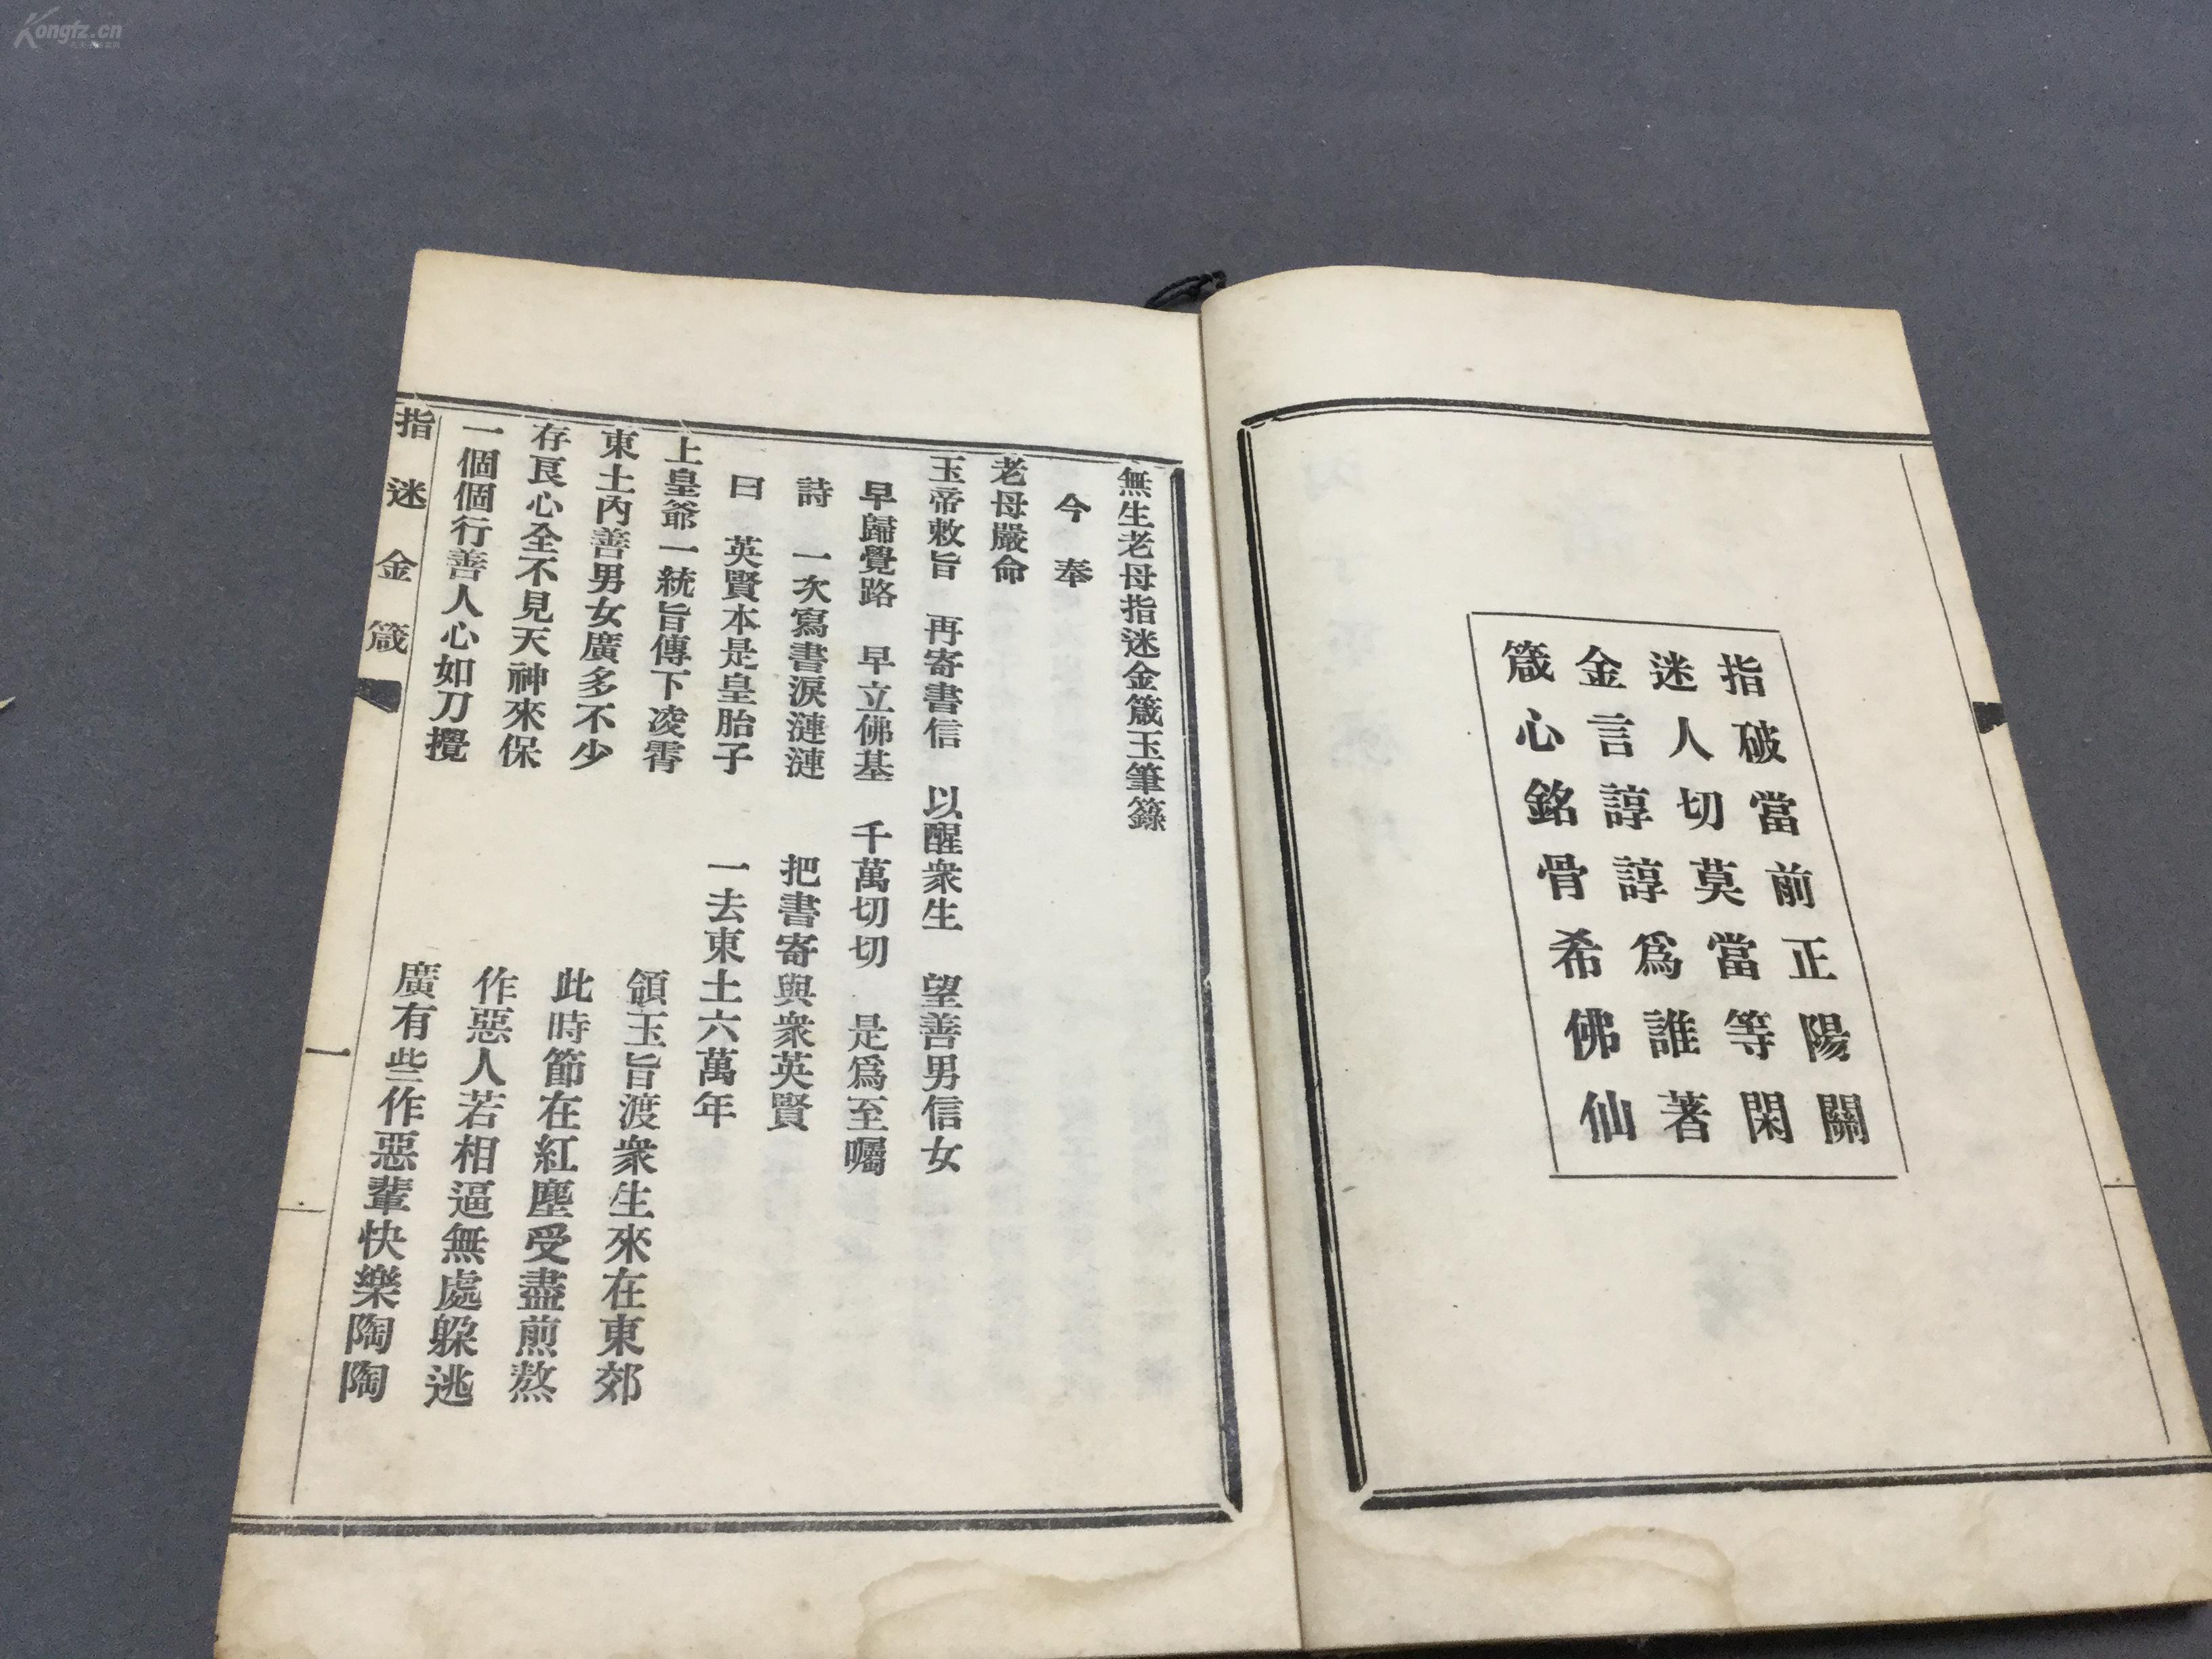 Kongfz.cn
指破當前正陽關
迷人切莫當等閑
金言諄諄爲誰著
箴心銘骨希佛仙
無生老母指迷金箴玉筆錄
今奉
老母嚴命
玉帝敕旨 再寄書信 以醒衆生 望善男信女
早歸覺路 早立佛基 千萬切切 是爲至囑
詩 一次寫書淚漣漣 把書寄與衆英賢
曰 英賢本是皇胎子 一去東土六萬年
上皇爺一統旨傳下凌霄 領玉旨渡衆生來在東郊
東土內善男女廣多不少 此時節在紅塵受盡煎熬
存良心全不見天神來保 作惡人若相逼無處躲逃
一個個行善人心如刀攪 廣有些作惡輩快樂陶陶
指迷金箴 一